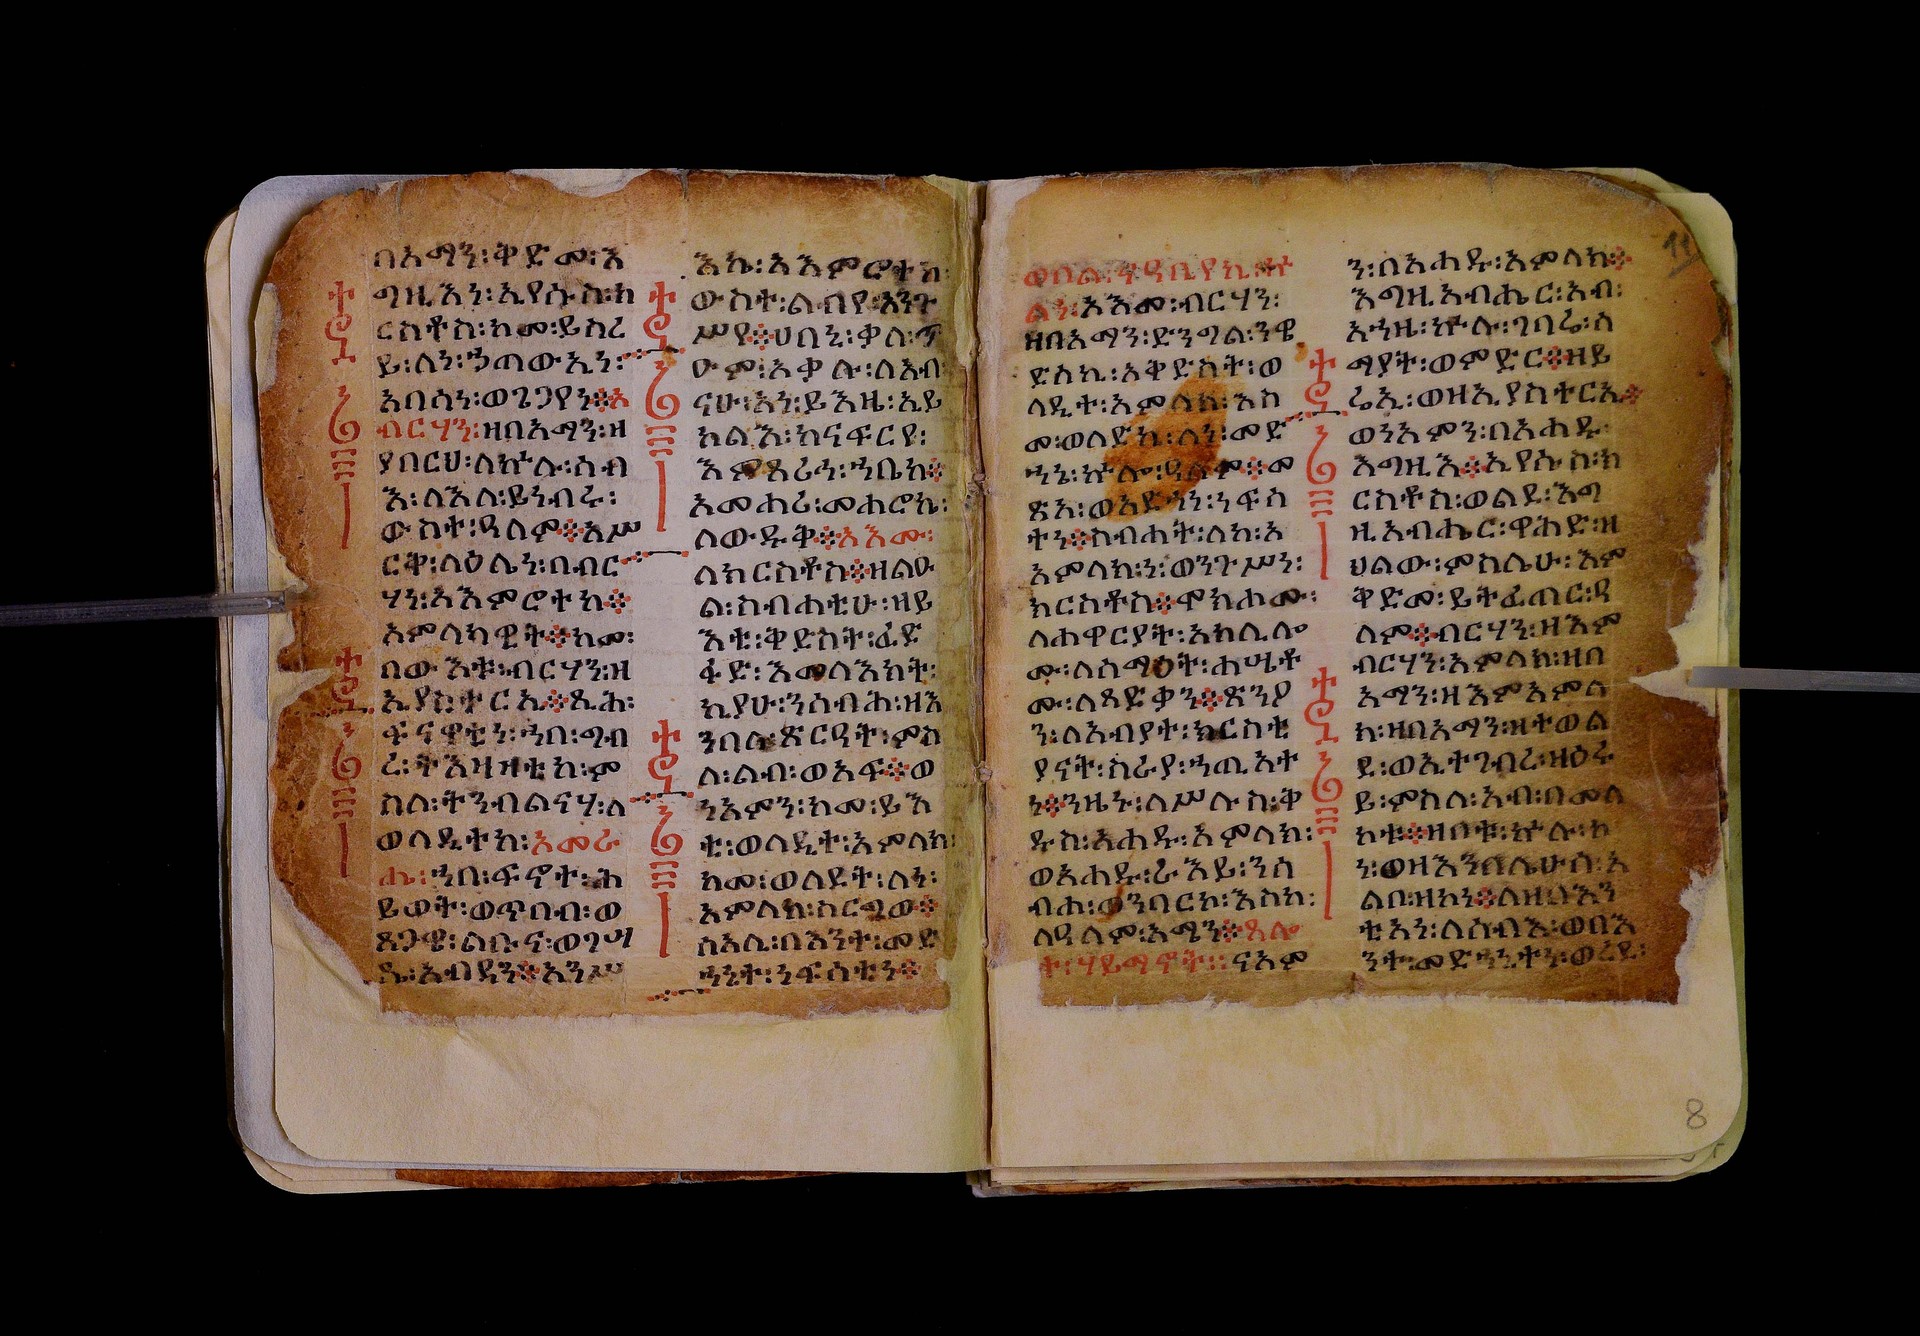 በአማን፡ቅድመ፡እ
ግዚእነ፡ኢየሱስ፡ክ
ርስቶስ፡ከመ፡ይስረ
ይ፡ለነ፡ኃጣውኢነ፡
አበሳነ፡ወጌጋየነ፨አ
ብርሃን፡ዘበአማን፡ዘ
ያበርህ፡ለኵሉ፡ሰብ
እ፡ለእለ፡ይነብሩ፡
ውስተ፡ዓለም፨አሥ
ርቅ፡ላዕሌነ፡በብር
ሃነ፡አእምሮተከ፨
አምላካዊት፨ከመ፡
በውእቱ፡ብርሃን፡ዘ
ኢያስተርአ፨ጺሕ፡
ፍናዋቲነ፡ኀበ፡ግብ
ረ፡ትእዛዛቲከ፡ም
ስለ፡ትንብልናሃ፡ለ
ወላዲትከ፡አመራ
ሒ፡ኀበ፡ፍኖተ፡ሕ
ይወት፡ወጥበብ፡ወ
ጸጋዊ፡ልቡና፡ወገሣ
ጼ፡አብዳን፨አንሥ
እኬ፡አእምሮተከ
ውስተ፡ልብየ፡አንጉ
ሥየ፨ሀበኒ፡ቃለ፡ጥ
ዑም፡አቃሉ፡ለአብ
ናሁ፡አነ፡ይእዜ፡ኢይ
ክልእ፡ከናፍርየ፡
እምጸሪሓ፡ኀቤከ፨
አመሐሪ፡መሐሮኬ፡
ለውዱቅ፨አእሙ፡
ለክርስቶስ፨ዘልዑ
ል፡ስብሐቲሁ፡ዘይ
እቲ፡ቅድስት፡ፈድ
ፋድ፡እመላእክት፡
ኪያሁ፡ንሰብሕ፡ዘእ
ንበለ፡ጽርዓት፡ምስ
ለ፡ልብ፡ወአፍ፨ወ
ንአምን፡ከመ፡ይእ
ቲ፡ወላዲተ፡አምላክ፡
ከመ፡ወለደት፡ለነ፡
አምላከ፡ስርግወ፨
ሰአሊ፡በእንተ፡መድ
ኀኒተ፡ነፍሳቲነ፨
ወበል፡
ልነ፡አእመ፡ብርሃን፡
ዘበአማን፡ድንግል፡ንዌ
ድሰኪ፡አቅድስት፡ወ
ላዲተ፡አምላክ፡እስ
መ፡ወለድኪ፡ለነ፡መድ
ኀኔ፡ኵሎ፡ዓለም፨መ
ጽአ፡ወአድኀነ፡ነፍሳ
ተነ፨ስብሐት፡ለከ፡አ
አምላክ፡ነ፡ወንጉሥነ፡
ክርስቶስ፨ሞክሖሙ፡
ለሐዋርያት፡አክሊሎ
ሙ፡ለሰማዕት፡ሐሤቶ
ሙ፡ለጻድቃን፨ጽንዖ
ን፡ለአብያተ፡ክርስቲ
ያናት፡ስራያ፡ኃጢአት
ነ፨ንዜኑ፡ለሥሉስ፡ቅ
ዱስ፡አሐዱ፡አምላክ፡
ወአሐዱ፡ራእይ፡ንሰ
ብሖ፡ወንባርኮ፡እስከ፡
ለዓለም፡አሜን፨ጸሎ
ተ፡ሃይማኖት፡፡ናአም
ን፡በአሐዱ፡አምላክ፨
እግዚአብሔር፡አብ፡
አኀዜ፡ኵሉ፡ገባሬ፡ሰ
ማያት፡ወምድር፨ዘይ
ሬኢ፡ወዘኢያስተርኢ፨
ወነአምን፡በአሐዱ፡
እግዚእ፨ኢየሱስ፡ክ
ርስቶስ፡ወልደ፡እግ
ዚአብሔር፡ዋሕድ፡ዘ
ህልው፡ምስሌሁ፡እም
ቅድመ፡ይትፈጠር፡ዓ
ለም፨ብርሃን፡ዘእም
ብርሃን፡አምላክ፡ዘበ
አማን፡ዘእምአምላ
ክ፡ዘበአማን፡ዘተወል
ደ፡ወኢተገብረ፡ዘዕሩ
ይ፡ምስለ፡አብ፡በመለ
ኮቱ፨ዘቦቱ፡ኵሉ፡ኮ
ነ፡ወዘእንበሌሁሰ፡አ
ልቦ፡ዝኮነ፨ለዘበእን
ቲአነ፡ለሰብእ፡ወበእ
ንተ፡መድኀኒትነ፡ወረደ፡
11
8